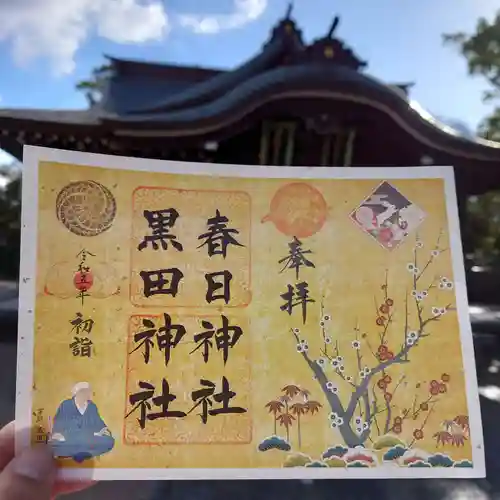 奉拝
春日神社
黒田神社
令和五年
初詣